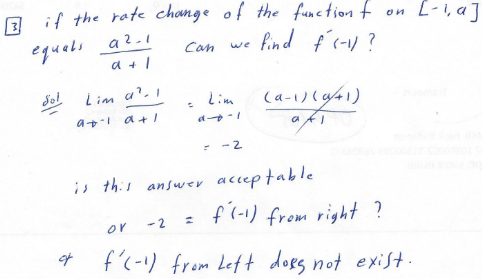 3 if the rate change of the function f on [-1,a]
equals a²-1 / a+1 can we find f'(-1) ?
sol Lim a→-1 a²-1 / a+1 = Lim a→-1 (a-1)(a+1) / a+1
= -2
is this answer acceptable
or -2 = f'(-1) from right ?
f'(-1) from Left does not exist.